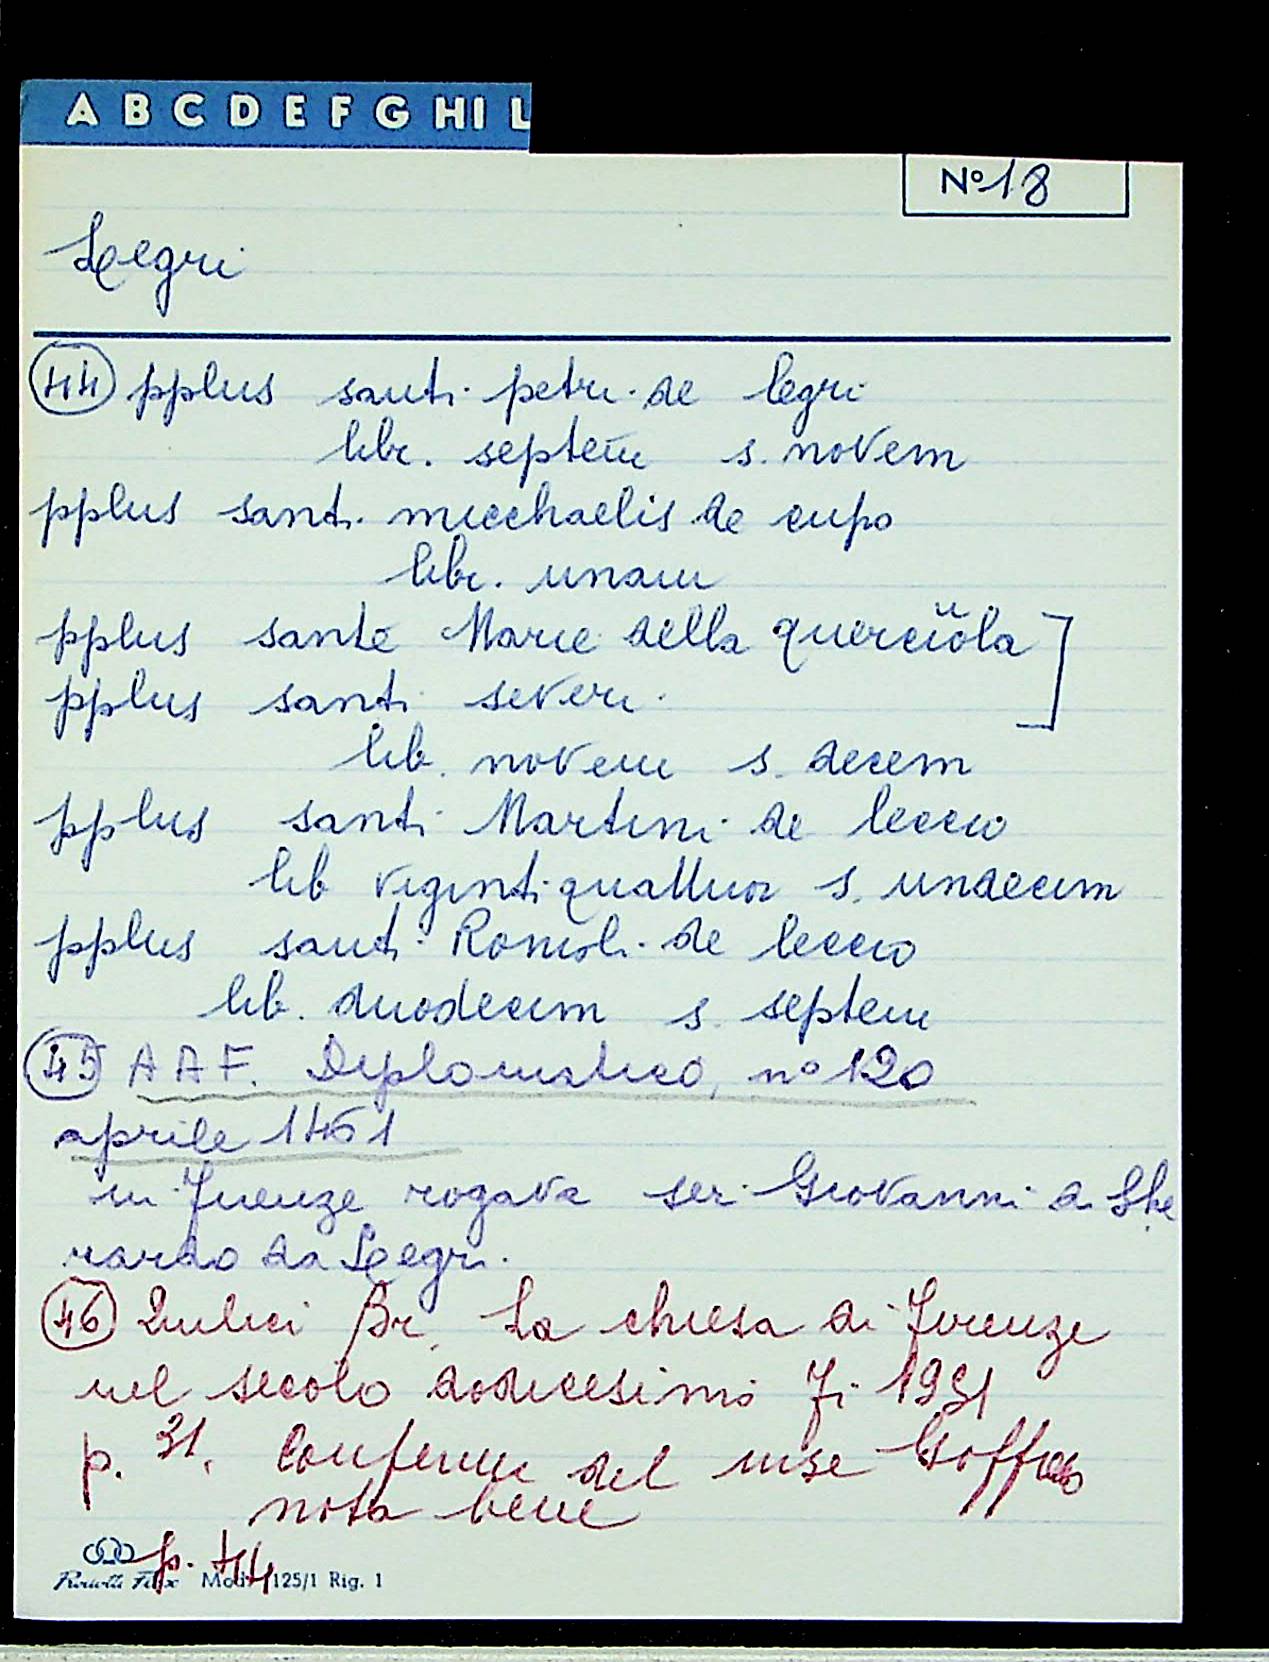 A B C D E F G H I L
N° 18
Legri
44 pplus santi petri de legri
libr. septem s. novem
pplus santi micchaelis de cupo
libr. unam
pplus sante Marie della querciola
pplus santi severi
lib. novem s. decem
pplus santi Martini de leccio
lib viginti quattuor s. undecim
pplus santi Romoli de leccio
lib. duodecim s. septem
45 A A F. Diplomatico, n° 120
aprile 1461
in Firenze rogava ser Giovanni di Ghe
rardo da Legri.
46 Quilici Br. La chiesa di Firenze
nel secolo dodicesimo Fi 1951
p. 31. Conferme del
nota bene
p. 44
Mod. 125/1 Rig. 1